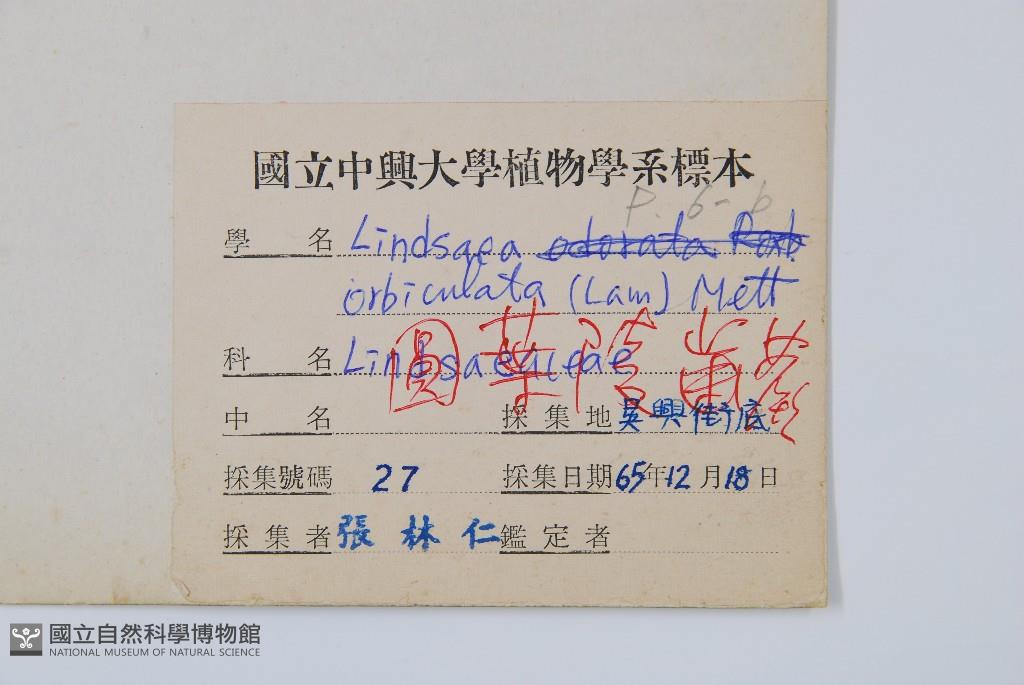 國立中興大學植物學系標本
P. 6-b
學名 Lindsaea odorata Roxb
orbiculata (Lam) Mett
科名 Lindsaeaceae
圓葉陵齒蕨
中名 採集地 吳興街底
採集號碼 27 採集日期 65年12月18日
採集者 張林仁 鑑定者
國立自然科學博物館
NATIONAL MUSEUM OF NATURAL SCIENCE